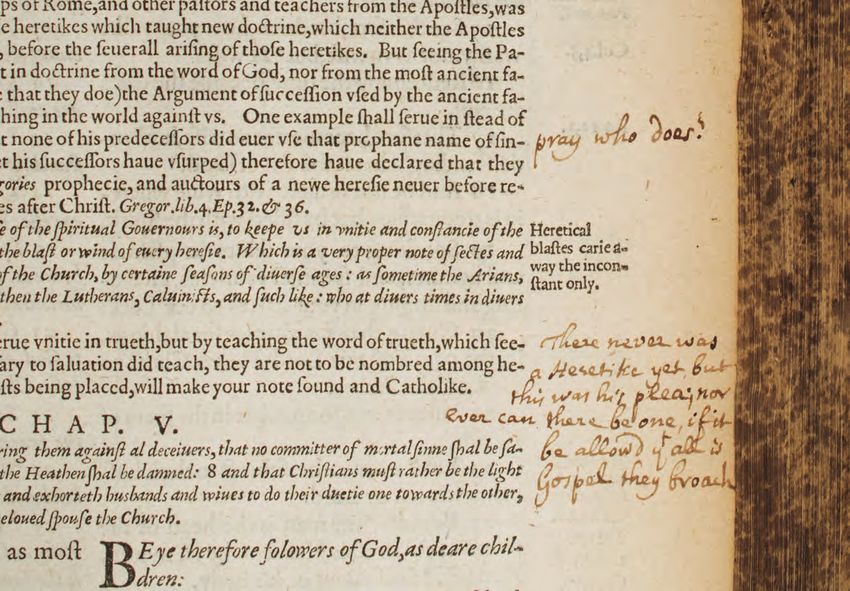 ps of Rome,and other paſtors and teachers from the Apoſtles,was
e heretikes which taught new doctrine,which neither the Apoſtles
, before the ſeuerall ariſing of thoſe heretikes. But ſeeing the Pa-
t in doctrine from the word of God, nor from the moſt ancient fa-
e that they doe)the Argument of ſucceſſion vſed by the ancient fa-
hing in the world againſt vs. One example ſhall ſerue in ſtead of
t none of his predeceſſors did euer vſe that prophane name of ſin-
et his ſucceſſors haue vſurped) therefore haue declared that they
gories prophecie, and auctours of a newe hereſie neuer before re-
es after Chriſt. Gregor.lib.4.Ep.32.& 36.
pray who does?
e of the ſpiritual Gouernours is, to keepe vs in vnitie and conſtancie of the
the blaſt or wind of euery hereſie. Which is a very proper note of ſectes and
of the Church, by certaine ſeaſons of diuerſe ages : as ſometime the Arians,
then the Lutherans, Caluiniſts, and ſuch like : who at diuers times in diuers
Heretical
blaſtes carie a-
way the incon-
ſtant only.
erue vnitie in trueth,but by teaching the word of trueth,which ſee-
ary to ſaluation did teach, they are not to be nombred among he-
ſts being placed,will make your note ſound and Catholike.
There never was
a Heretike yet, but
this was his plea; nor
ever can there be one, if it
be allow'd yt all is
Gospel they broach
CHAP. V.
ring them againſt al deceiuers, that no committer of mortal ſinne ſhal be ſa-
the Heathen ſhal be damned: 8 and that Chriſtians muſt rather be the light
and exhorteth husbands and wiues to do their duetie one towards the other,
eloued ſpouſe the Church.
as moſt
BEye therefore folowers of God,as deare chil-
dren: